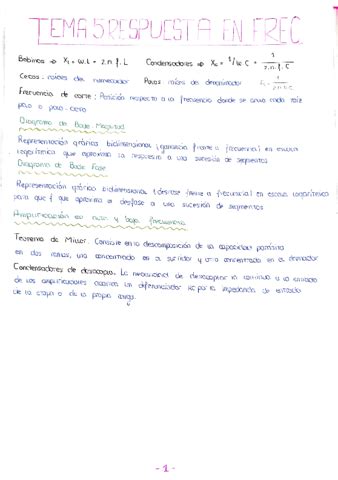 TEMA 5 RESPUESTA EN FREC.
Bobinas ⇒ XL = ω.L = 2.π.f.L Condensadores ⇒ Xc = 1/ω.C = 1/2.π.f.C
Ceros: raíces del numerador Polos: raíces del denominador
Frecuencia de corte: Posición respecto a la frecuencia donde se anula cada raíz
polo o cero
Diagrama de Bode Magnitud
Representación gráfica bidimensional (ganancia frente a frecuencia) en escala
logarítmica que aproxima la respuesta a una sucesión de segmentos
Diagrama de Bode Fase
Representación gráfica bidimensional (desfase frente a frecuencia) en escala logarítmica
para que aproxima el desfase a una sucesión de segmentos
Amplificación en alta y baja frecuencia
Teorema de Miller: Consiste en la descomposición de la capacidad parásita
en dos ramas, una concentrada en el surtidor y otra concentrada en el drenador
Condensadores de desacoplo: La necesidad de desacoplar la continua a la entrada
de los amplificadores por la impedancia de entrada
de la etapa o de la propia carga.
- 1 -